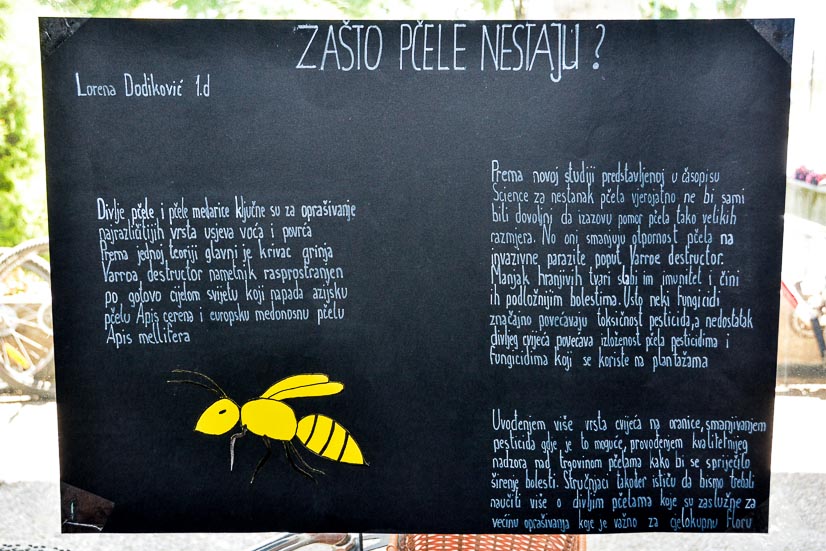 ZAŠTO PČELE NESTAJU?
Lorena Dodiković 1.d
Divlje pčele i pčele medarice ključne su za oprašivanje
najrazličitijih vrsta usjeva voća i povrća
Prema jednoj teoriji glavni je krivac grinja
Varroa destructor nametnik rasprostranjen
po gotovo cijelom svijetu koji napada azijsku
pčelu Apis cerena i europsku medonosnu pčelu
Apis mellifera
Prema novoj studiji predstavljenoj u časopisu
Science za nestanak pčela vjerojatno ne bi sami
bili dovoljni da izazovu pomor pčela tako velikih
razmjera. No oni smanjuju otpornost pčela na
invazivne parazite poput Varroe destructor.
Manjak hranjivih tvari slabi im imunitet i čini
ih podložnijim bolestima. Usto neki fungicidi
značajno povećavaju toksičnost pesticida,a nedostatak
divljeg cvijeća povećava izloženost pčela pesticidima i
fungicidima koji se koriste na plantažama
Uvođenjem više vrsta cvijeća na oranice,smanjivanjem
pesticida gdje je to moguće, provođenjem kvalitetnijeg
nadzora nad trgovinom pčelama kako bi se spriječilo
širenje bolesti. Stručnjaci također ističu da bismo trebali
naučiti više o divljim pčelama koje su zaslužne za
većinu oprašivanja koje je važno za cjelokupnu floru